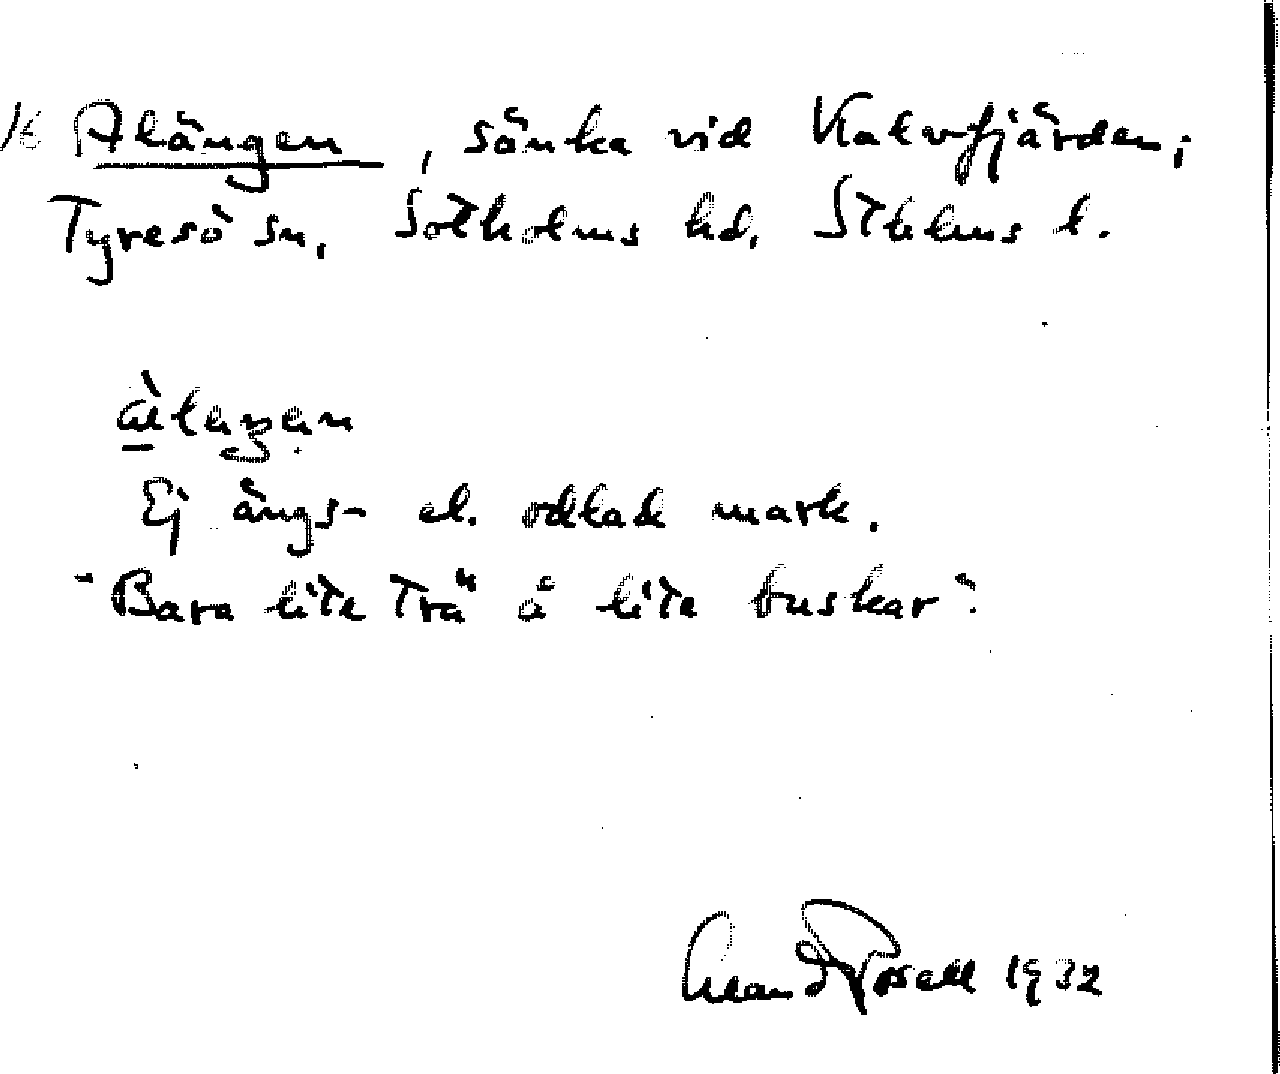 Alängen, sänka vid Kalvfjärden,
Tyresö sn, Sotholms hd, Sthlms l.
àlạŋạn
Ej ängs- el. odlad mark.
"Bara lite trä å lite buskar".
Rosell 1932